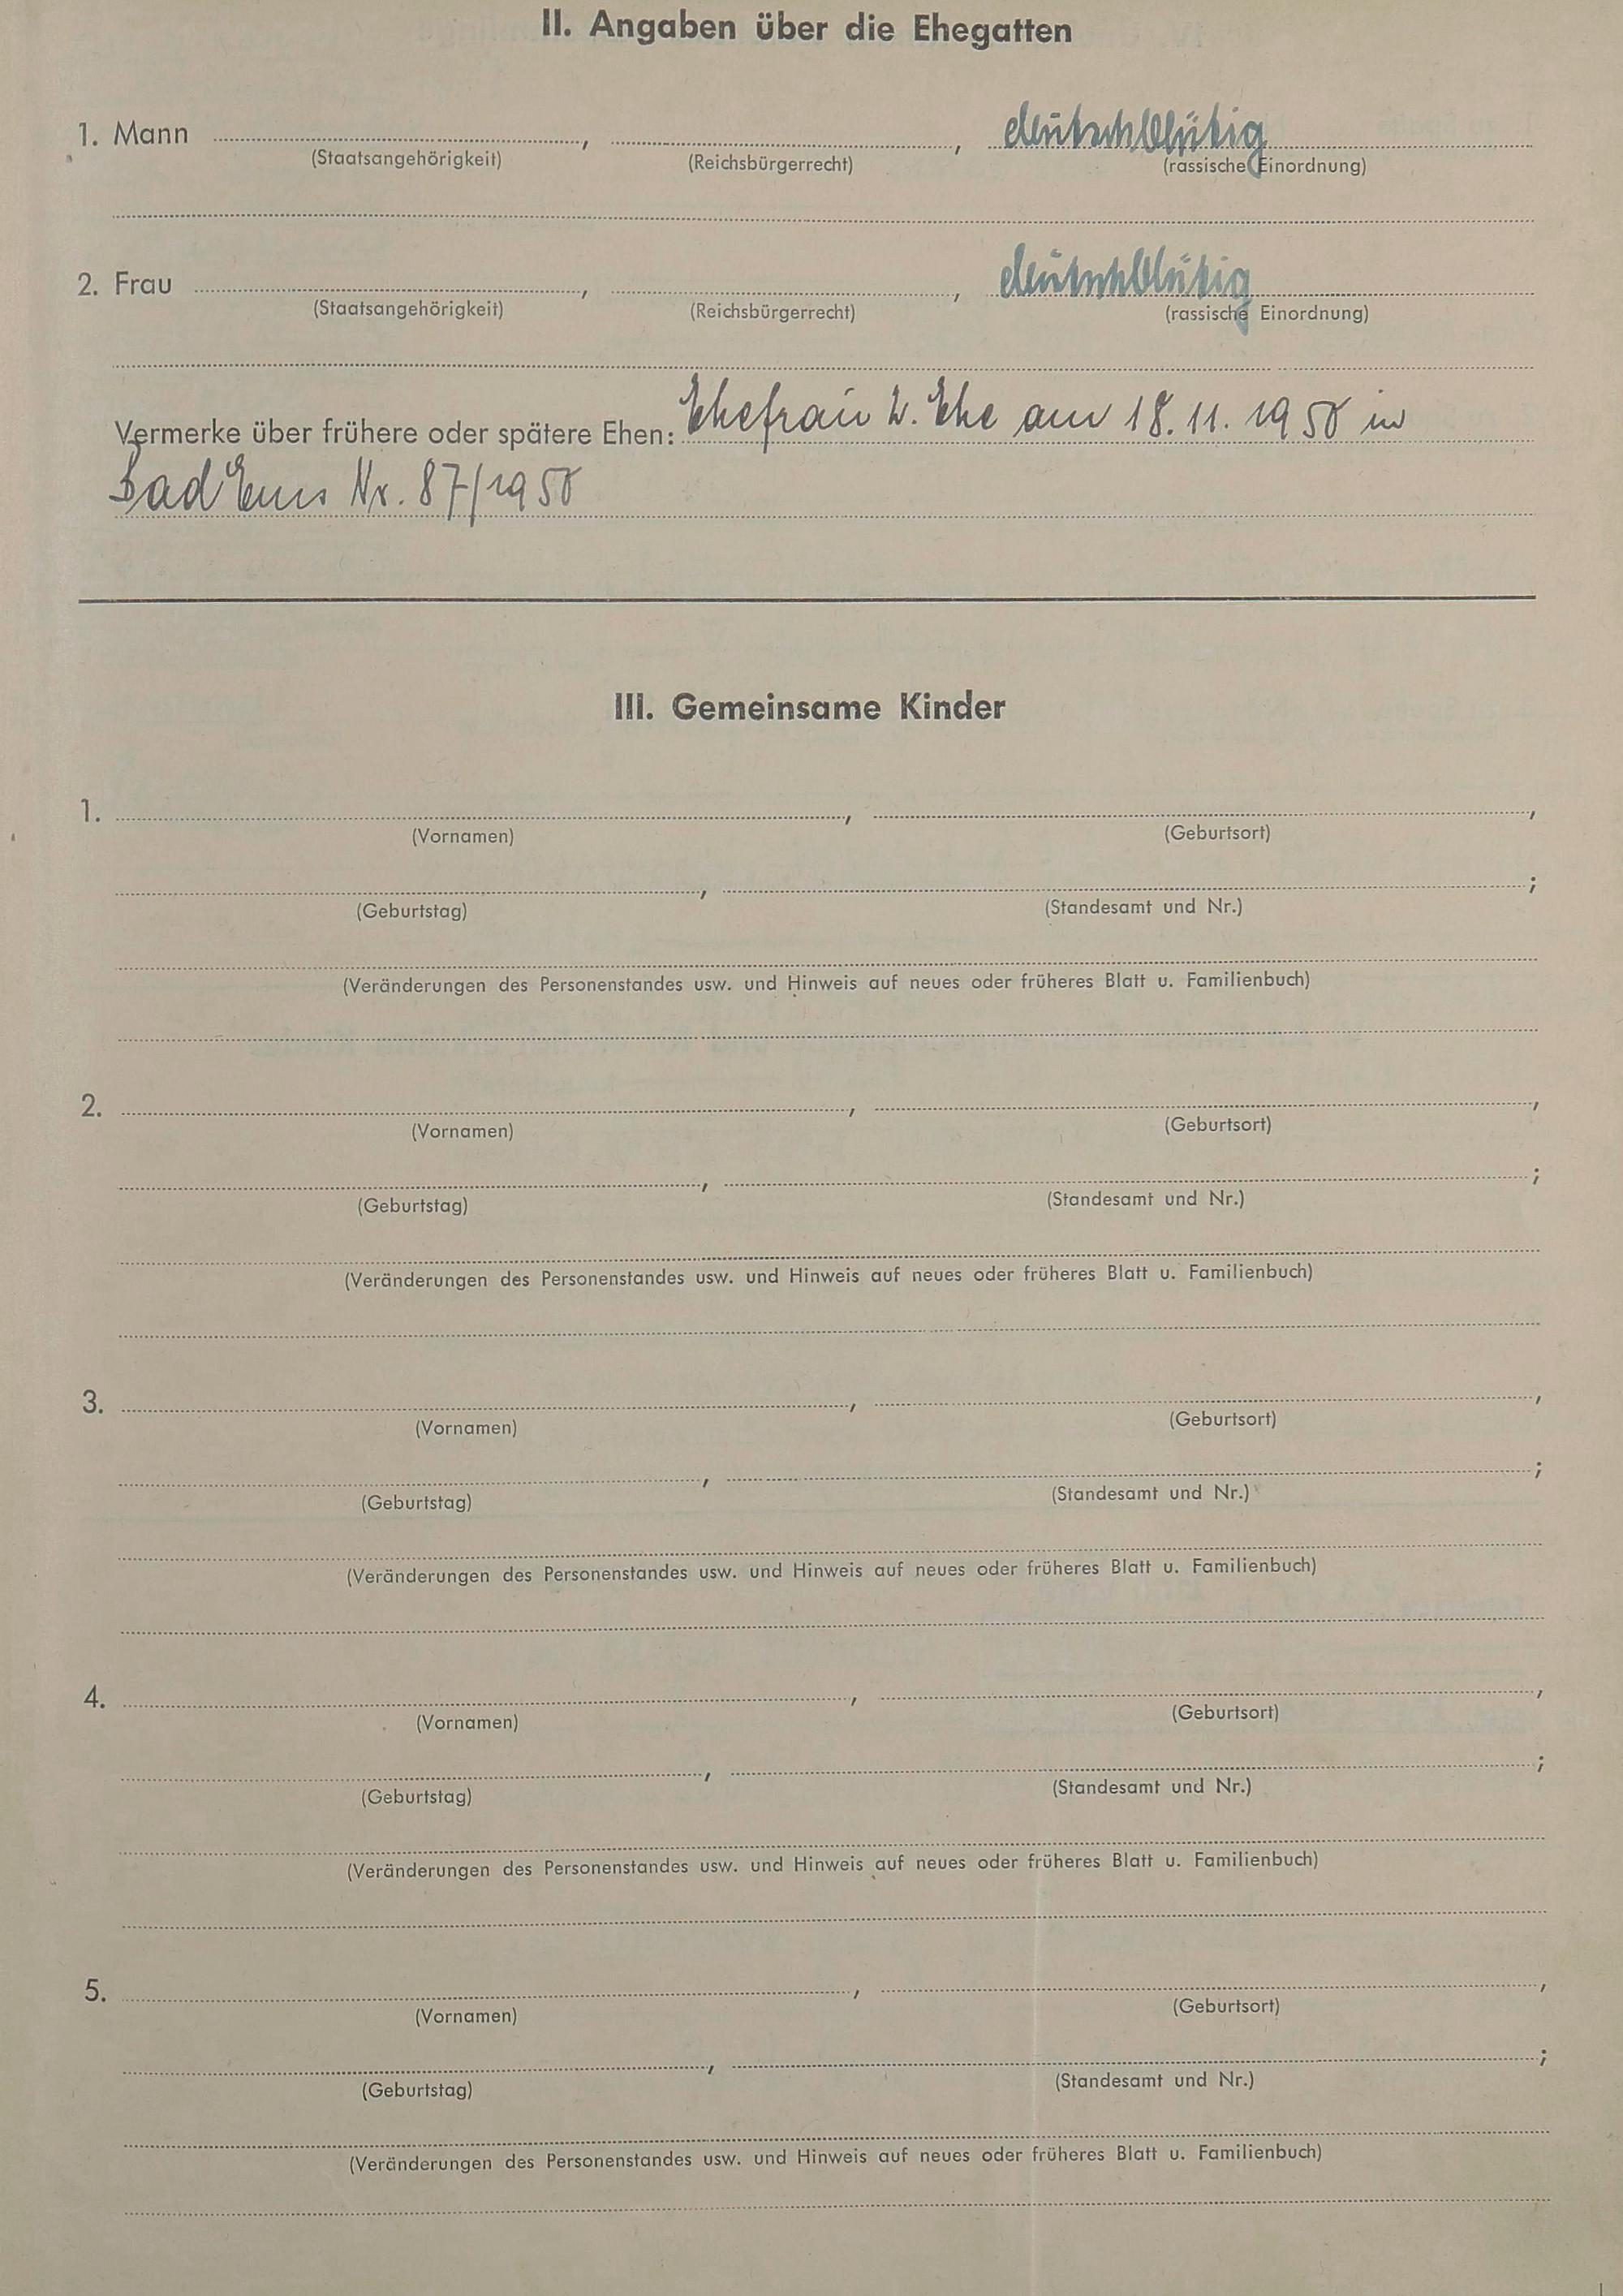 II. Angaben über die Ehegatten
1. Mann , , deutschblütig
(Staatsangehörigkeit) (Reichsbürgerrecht) (rassische Einordnung)
2. Frau , , deutschblütig
(Staatsangehörigkeit) (Reichsbürgerrecht) (rassische Einordnung)
Vermerke über frühere oder spätere Ehen: Ehefrau 2. Ehe am 18. 11. 1950 in
Bad Ems Nr. 87/1950
III. Gemeinsame Kinder
1. , ,
(Vornamen) (Geburtsort)
, ;
(Geburtstag) (Standesamt und Nr.)
(Veränderungen des Personenstandes usw. und Hinweis auf neues oder früheres Blatt u. Familienbuch)
2. , ,
(Vornamen) (Geburtsort)
, ;
(Geburtstag) (Standesamt und Nr.)
(Veränderungen des Personenstandes usw. und Hinweis auf neues oder früheres Blatt u. Familienbuch)
3. , ,
(Vornamen) (Geburtsort)
, ;
(Geburtstag) (Standesamt und Nr.)
(Veränderungen des Personenstandes usw. und Hinweis auf neues oder früheres Blatt u. Familienbuch)
4. , ,
(Vornamen) (Geburtsort)
, ;
(Geburtstag) (Standesamt und Nr.)
(Veränderungen des Personenstandes usw. und Hinweis auf neues oder früheres Blatt u. Familienbuch)
5. , ,
(Vornamen) (Geburtsort)
, ;
(Geburtstag) (Standesamt und Nr.)
(Veränderungen des Personenstandes usw. und Hinweis auf neues oder früheres Blatt u. Familienbuch)